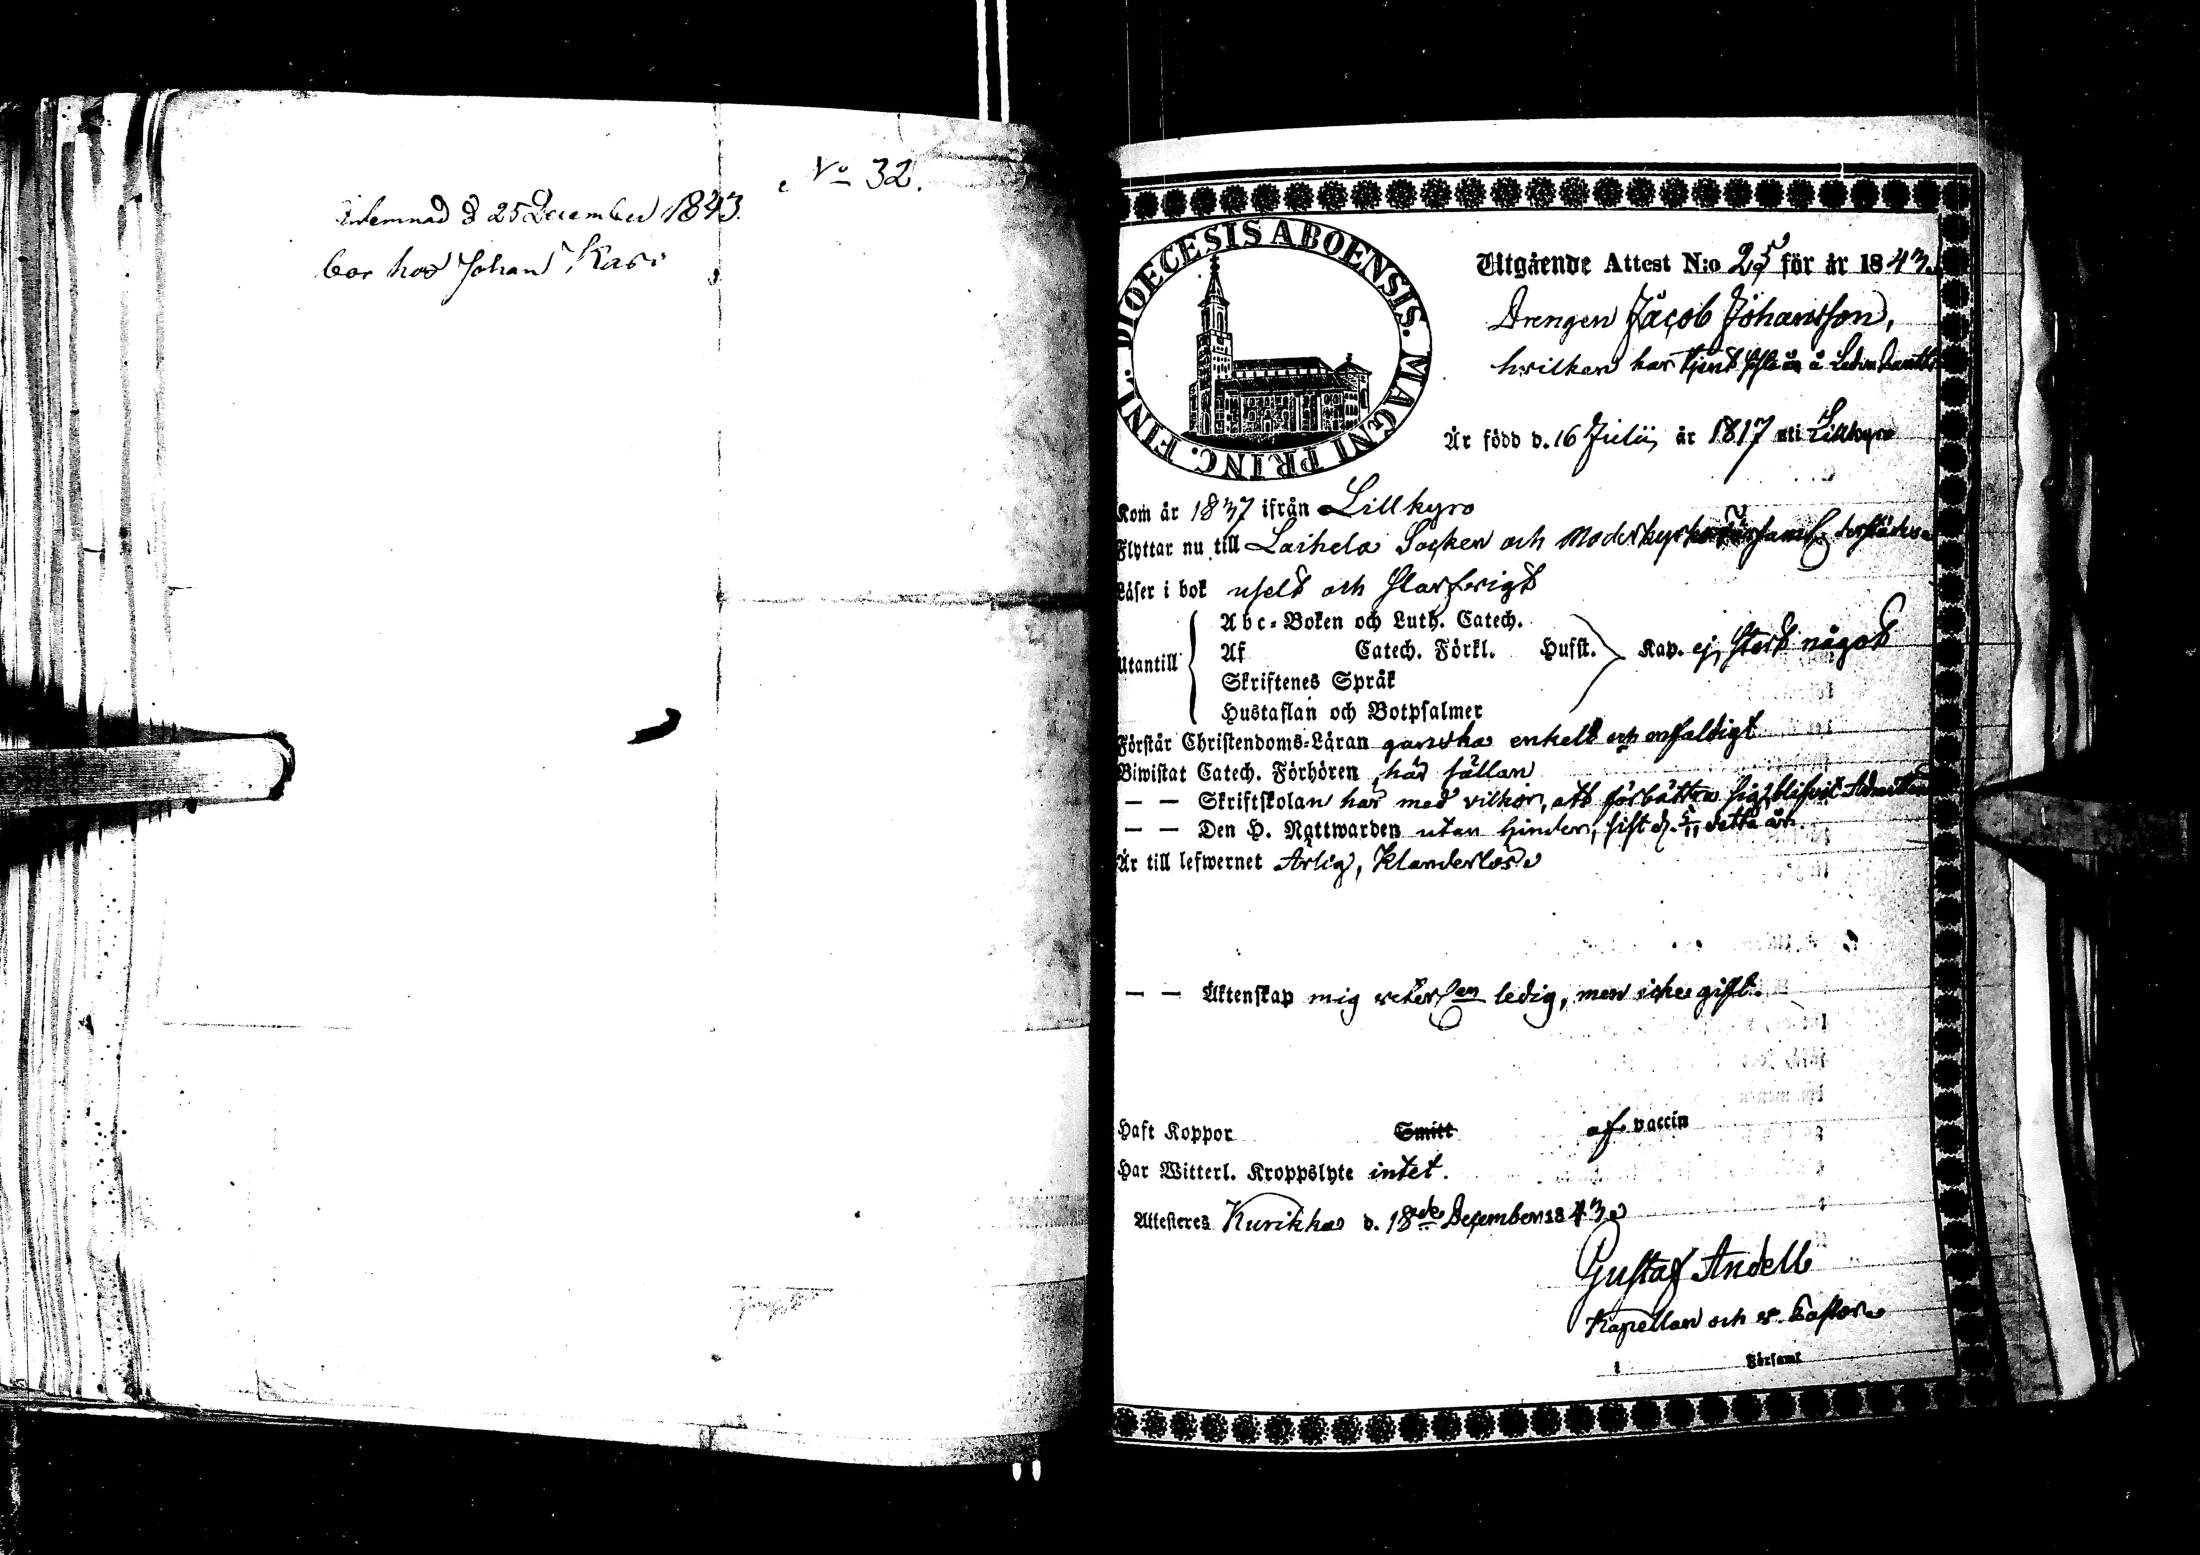 No 32.
Inlemnad d 25 December 1843.
bor hos Johan Kasi
FINL. DIOECESIS ABOENSIS. MAGNI PRINC.
Utgående Attest N:o 25 för år 1843.
Drengen Jacob Johansson,
hvilken har tjent sista år å
Är född d. 16 Julii, år 1817 uti Lillkyro
Kom år 1837 ifrån Lillkyro
Flyttar nu till Laihela Socken och Moderkyrko församl. derstädes
Läser i bok uselt och slarfvigt
Utantill
Abc-Boken och Luth. Catech.
Af Catech. Förkl. Husst. Kap. ej stort något
Skriftenes Språk
Hustaflan och Botpsalmer
Förstår Christendoms-Läran ganska enkelt och enfaldigt
Biwistat Catech. Förhören här sällan
— — Skriftskolan har med vilkor, att förbättra sig, blifvit
— — Den H. Nattwarden utan hinder, sist d. 5/11 detta år.
Är till lefwernet Ärlig, Klanderlös.
— — Äktenskap mig veterl.en ledig, men icke gift.
Haft Koppor Smitt af vaccin
Har Witterl. Kroppslyte intet.
Attesteras Kurikka d. 18de December 1843.
Gustaf Andell
Kapellan och v. Pastor.
i Församl